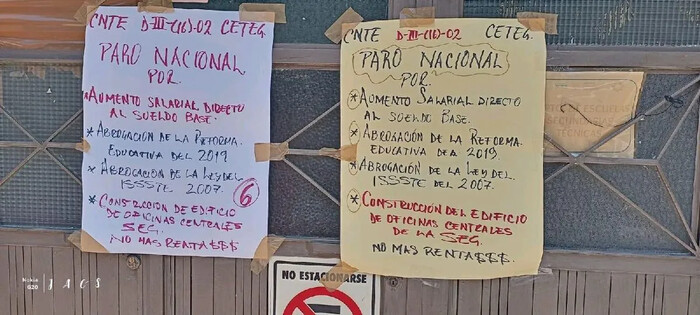 CNTE D-III-(16)-02 CETEG.
PARO NACIONAL
POR.
*AUMENTO SALARIAL DIRECTO
AL SUELDO BASE.
* ABROGACIÓN DE LA REFORMA
EDUCATIVA DEL 2019
* ABROGACIÓN DE LA LEY DEL
ISSSTE 2007.
6
* CONSTRUCCIÓN DE EDIFICIO
DE OFICINAS CENTRALES
SEG.
NO MAS RENTA$$$
CNTE D-III-(16)-02 CETEG.
PARO NACIONAL
POR.
* AUMENTO SALARIAL DIRECTO
AL SUELDO BASE.
* ABROGACIÓN DE LA REFORMA
EDUCATIVA DEL 2019.
* ABROGACIÓN DE LA LEY DEL
ISSSTE DEL 2007.
* CONSTRUCCIÓN DEL EDIFICIO
DE OFICINAS CENTRALES
DE LA SEG.
NO MAS RENTA$$$.
DE ESCUELAS
SECUNDARIAS
TÉCNICAS
NO ESTACIONARSE
Nokia
G20
JACS